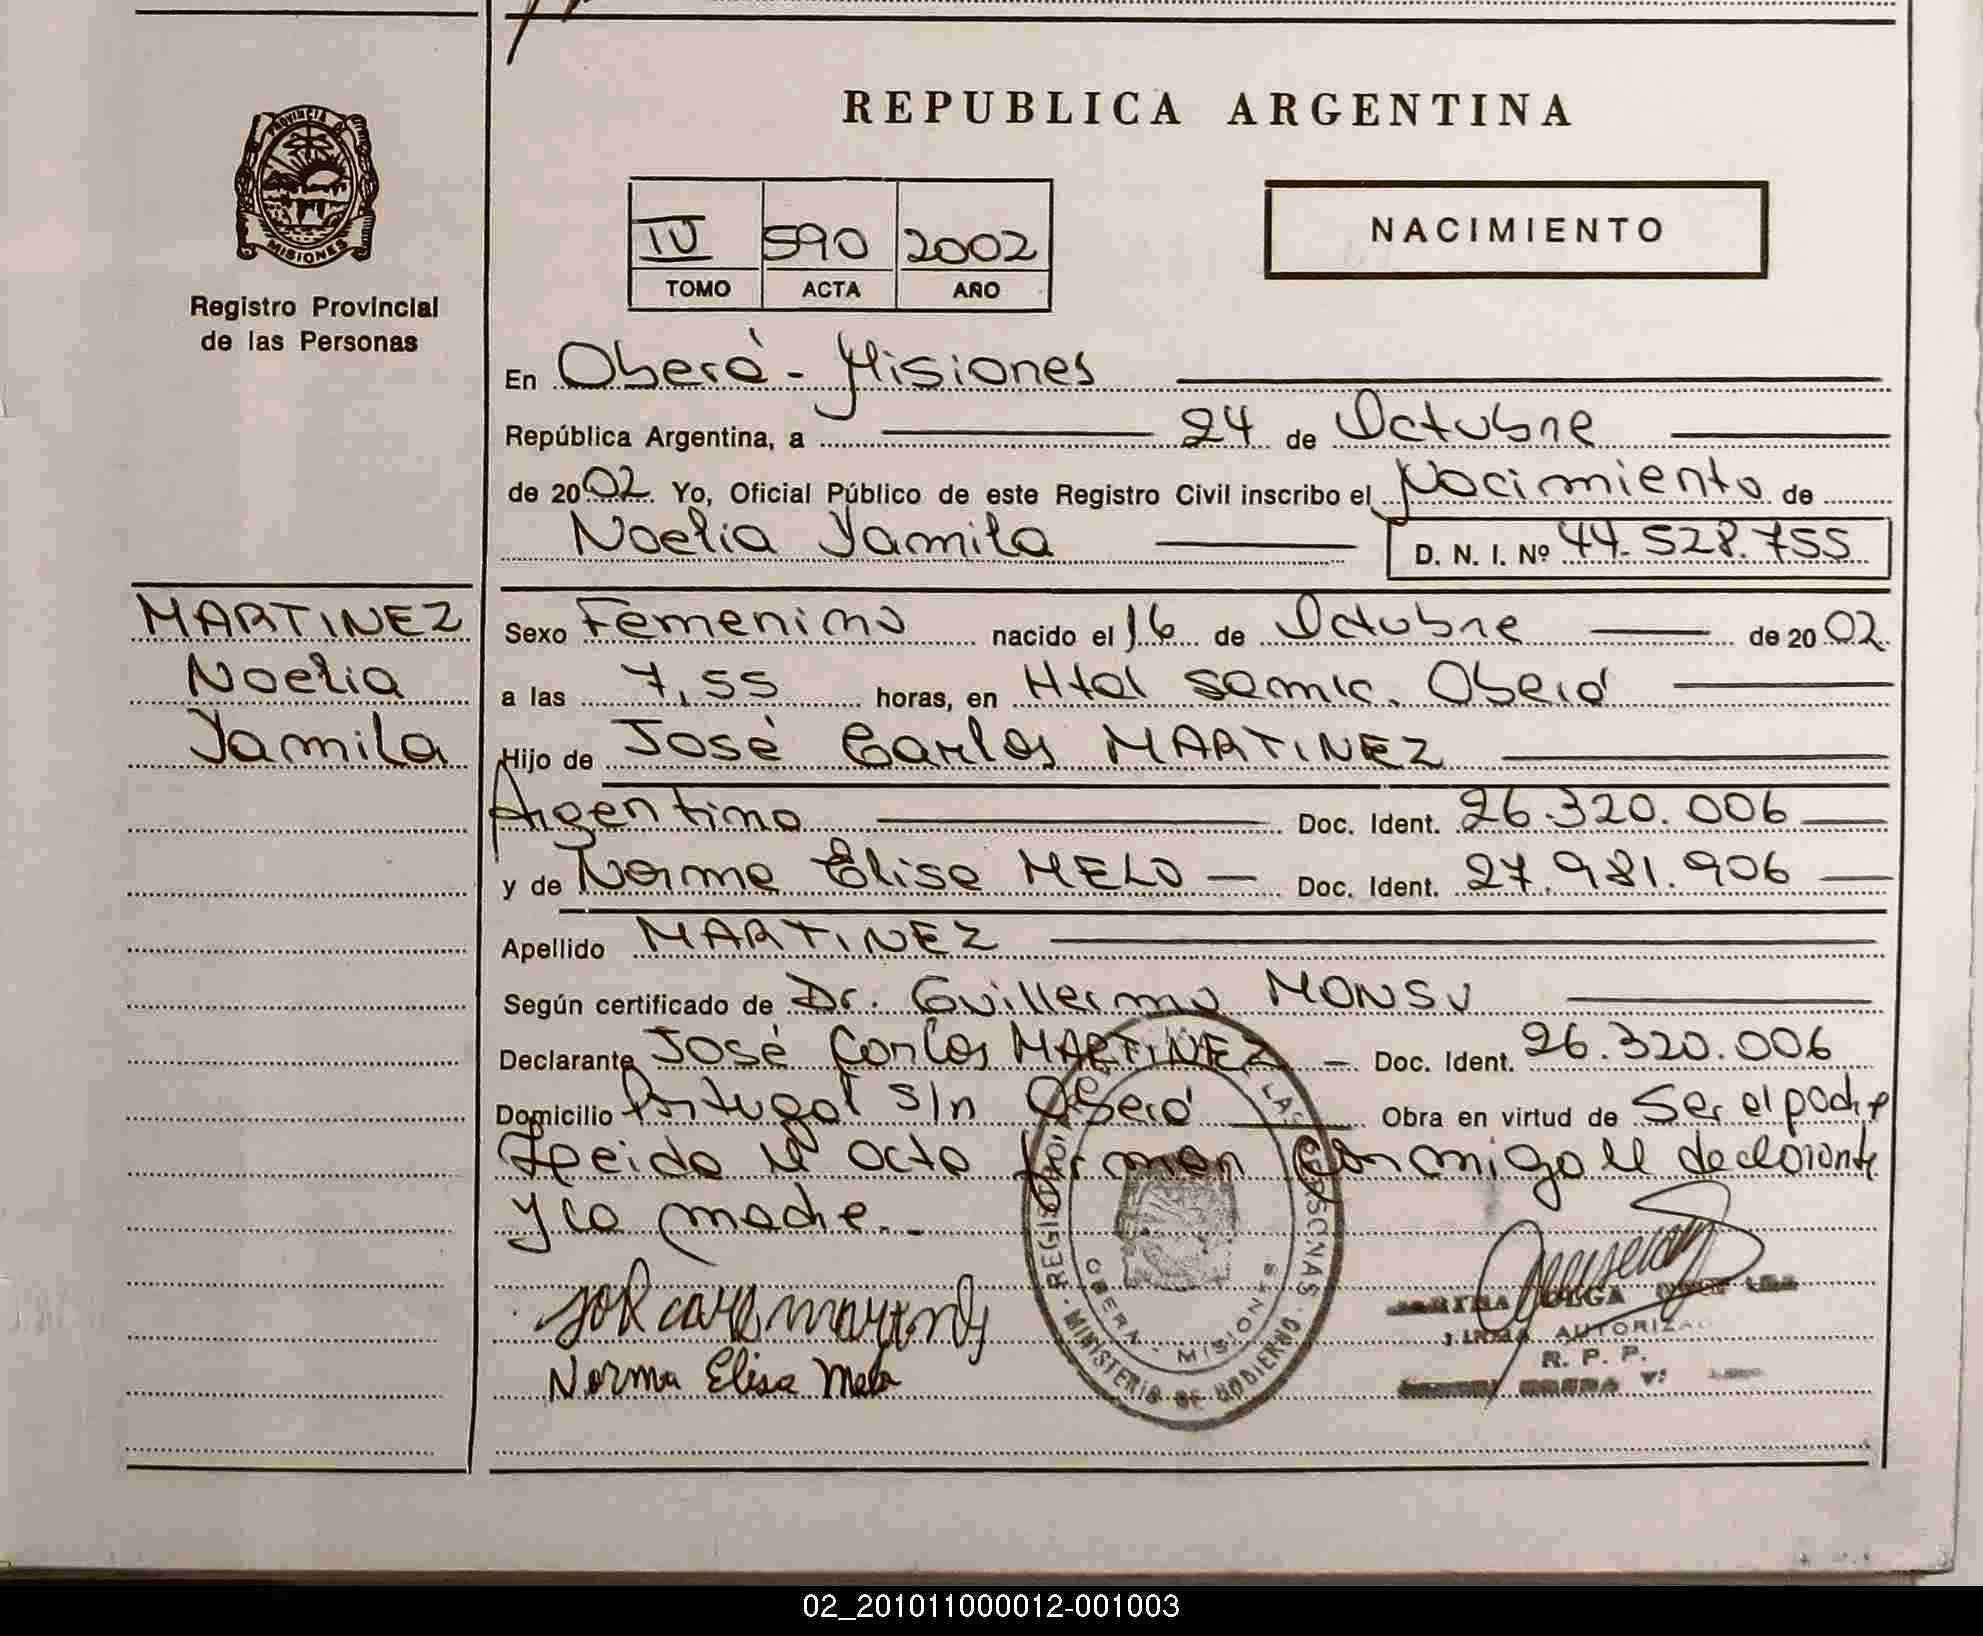 REPUBLICA ARGENTINA
PROVINCIA DE
MISIONES
Registro Provincial
de las Personas
IV 590 2002
TOMO ACTA AÑO
NACIMIENTO
En Oberá - Misiones
República Argentina, a 24 de Octubre
de 2002. Yo, Oficial Público de este Registro Civil inscribo el Nacimiento de
Noelia Yamila D. N. I. Nº 44.528.755
MARTINEZ
Noelia
Yamila
Sexo Femenino nacido el 16 de Octubre de 2002
a las 7,55 horas, en Htal Samic. Oberá
Hijo de José Carlos MARTINEZ
Argentino Doc. Ident. 26.320.006
y de Norma Elisa MELO Doc. Ident. 27.981.906
Apellido MARTINEZ
Según certificado de Dr. Guillermo MONSU
Declarante José Carlos MARTINEZ - Doc. Ident. 26.320.006
Domicilio Portugal S/n Oberá Obra en virtud de Ser el padre
Leida el acta firman conmigo el declarante
y la madre.-
Norma Elisa Melo
OLGA
FIRMA AUTORIZA
R. P. P.
REGISTRO LAS PERSONAS
MINISTERIO DE GOBIERNO
OBERA - MISIONES
02_201011000012-001003